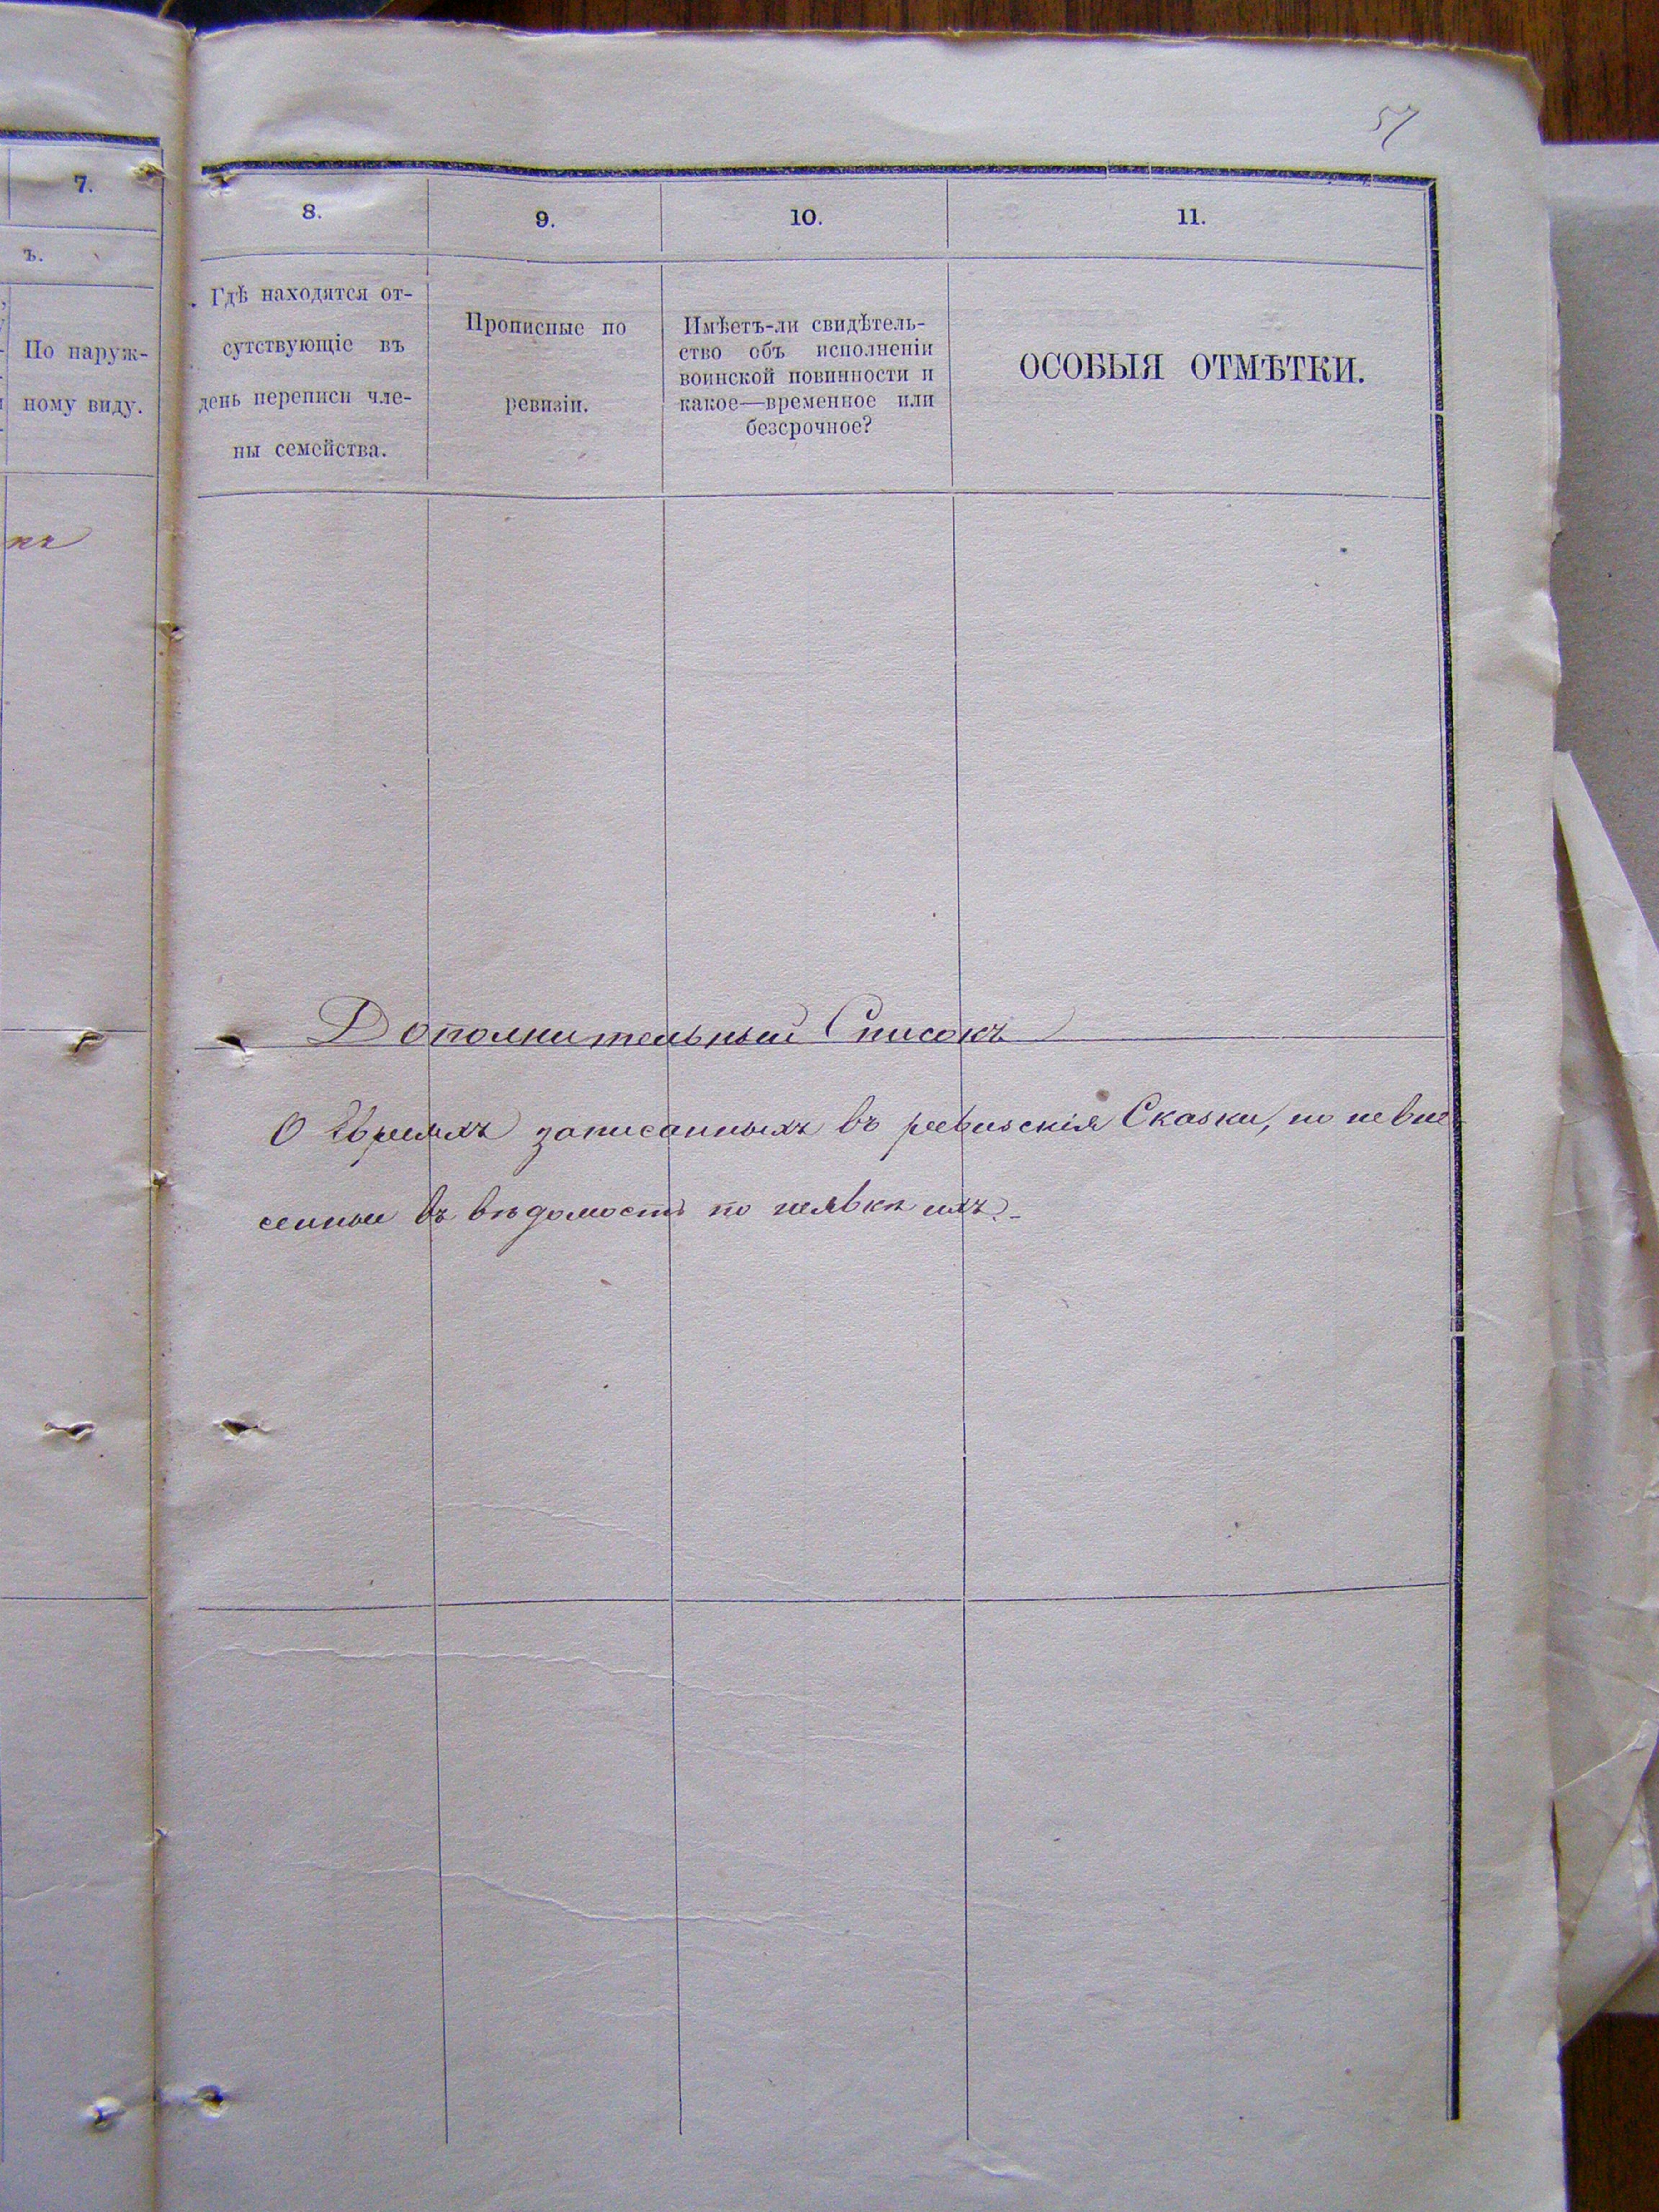 57
7.
ъ.
По наруж-
ному виду.
8.
9.
10.
11.
Гдѣ находятся от-
сутствующіе въ
день переписи чле-
ны семейства.
Прописные по
ревизіи.
Имѣетъ-ли свидѣтель-
ство объ исполненіи
воинской повинности и
какое—временное или
безсрочное?
ОСОБЫЯ ОТМѢТКИ.
Дополнительный Списокъ
О Евреяхъ записанныхъ въ ревизскія Сказки, но невне
сенные въ вѣдомость по неявкѣ ихъ.